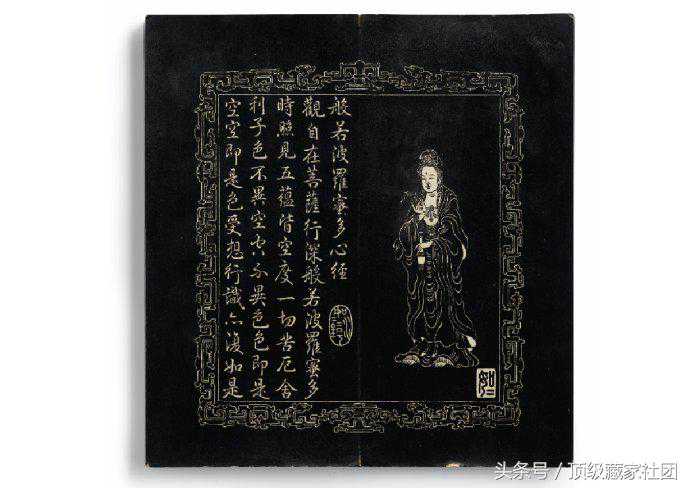 般若波羅蜜多心經
觀自在菩薩行深般若波羅蜜多
時照見五蘊皆空度一切苦厄舍
利子色不異空空不異色色即是
空空即是色受想行識亦復如是
头条号 / 顶级藏家社团